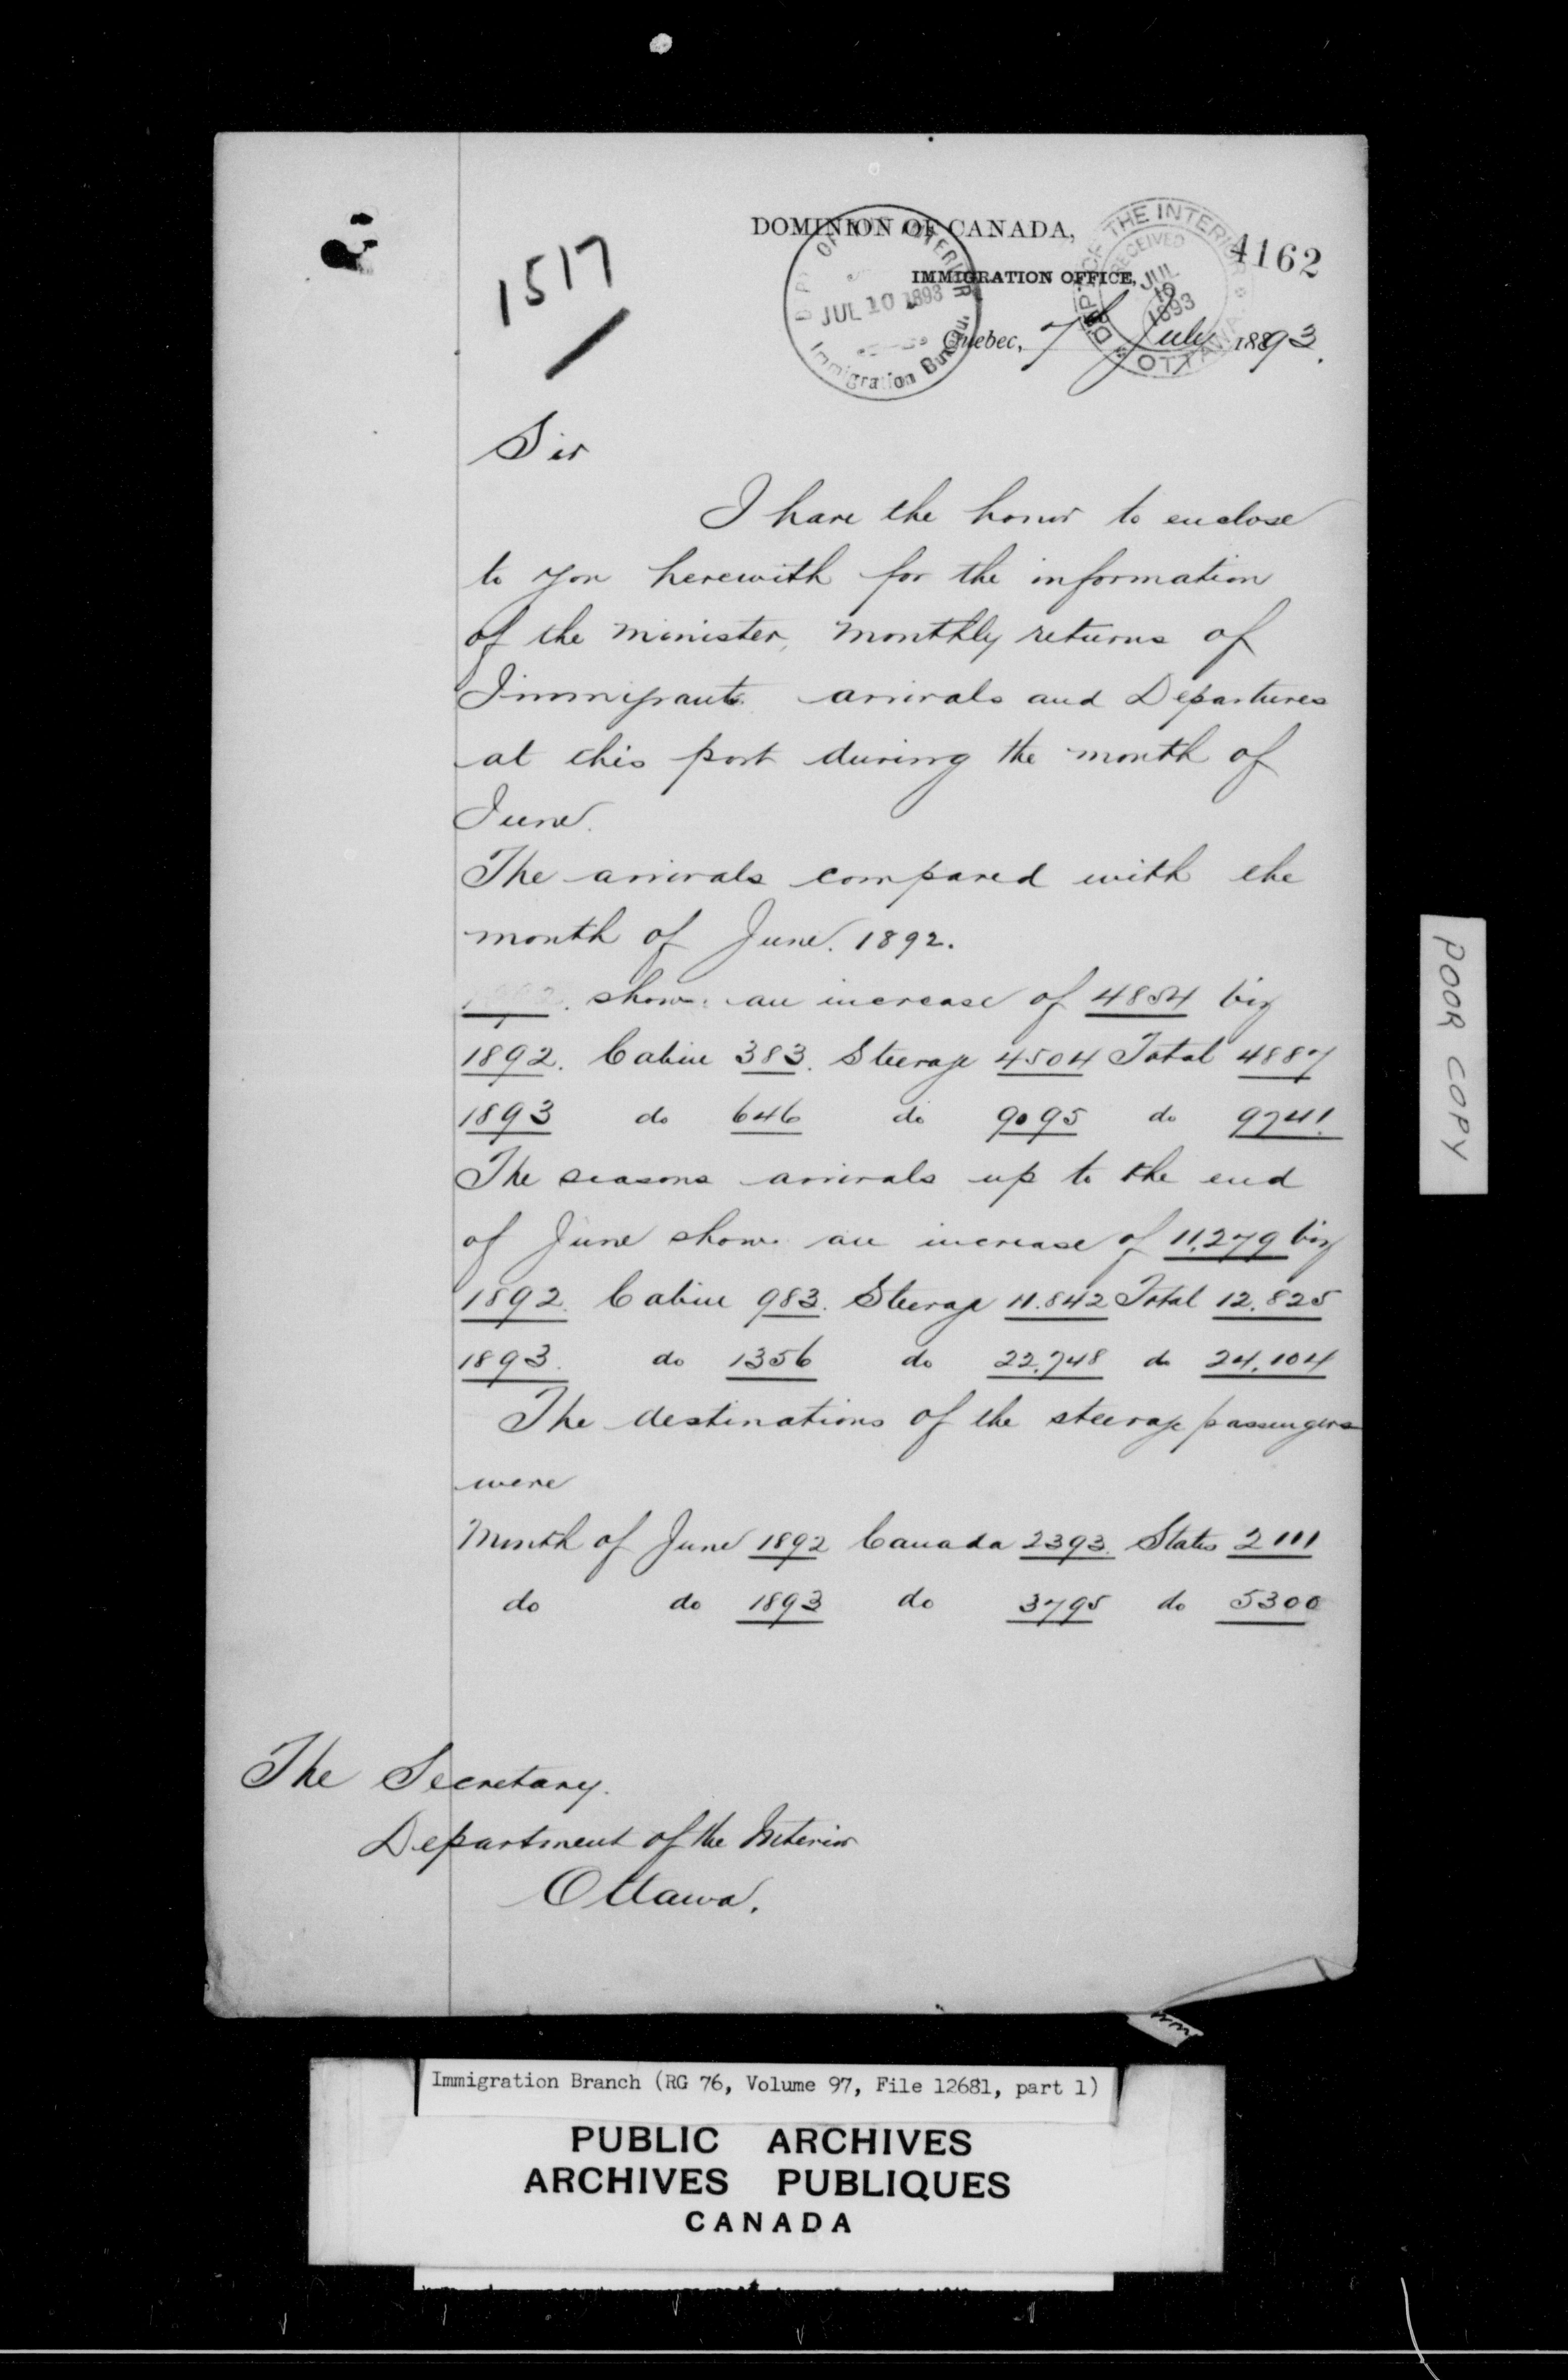 DOMINION OF CANADA,
4162
IMMIGRATION OFFICE,
DEPT OF THE INTERIOR
JUL 10 1893
Immigration Bureau.
DEPT OF THE INTERIOR
RECEIVED
JUL
10
1893
OTTAWA
1517
Quebec, 7th July 1893.
Sir
I have the honor to enclose
to you herewith for the information
of the Minister, Monthly returns of
Immigrants arrivals and Departures
at this port during the month of
June.
The arrivals compared with the
month of June. 1892.
show an increase of 4854 viz
1892. Cabin 383. Steerage 4504 Total 4887
1893 do 646 do 9095 do 9741.
The seasons arrivals up to the end
of June show an increase of 11,279 viz
1892. Cabin 983. Steerage 11.842 Total 12.825
1893. do 1356 do 22,748 do 24,104
The destinations of the steerage passengers
were
Month of June 1892 Canada 2393. States 2111
do do 1893 do 3795 do 5300
The Secretary.
Department of the Interior
Ottawa.
POOR COPY
Immigration Branch (RG 76, Volume 97, File 12681, part 1)
PUBLIC ARCHIVES
ARCHIVES PUBLIQUES
CANADA